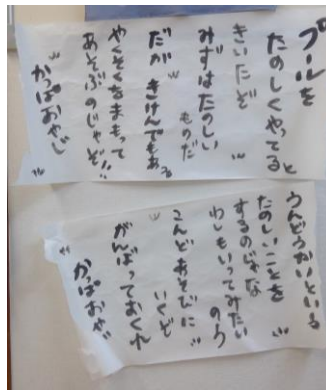 プールを
たのしくやってると
きいたぞ
みずはたのしい
ものだ
だが きけんでもある
やくそくをまもって
あそぶのじゃぞ!!
かっぱおやじ
うんどうかいという
たのしいことを
するのじゃな
わしもいってみたい
のう
こんどあそびに
いくぞ
がんばっておくれ
かっぱおやじ